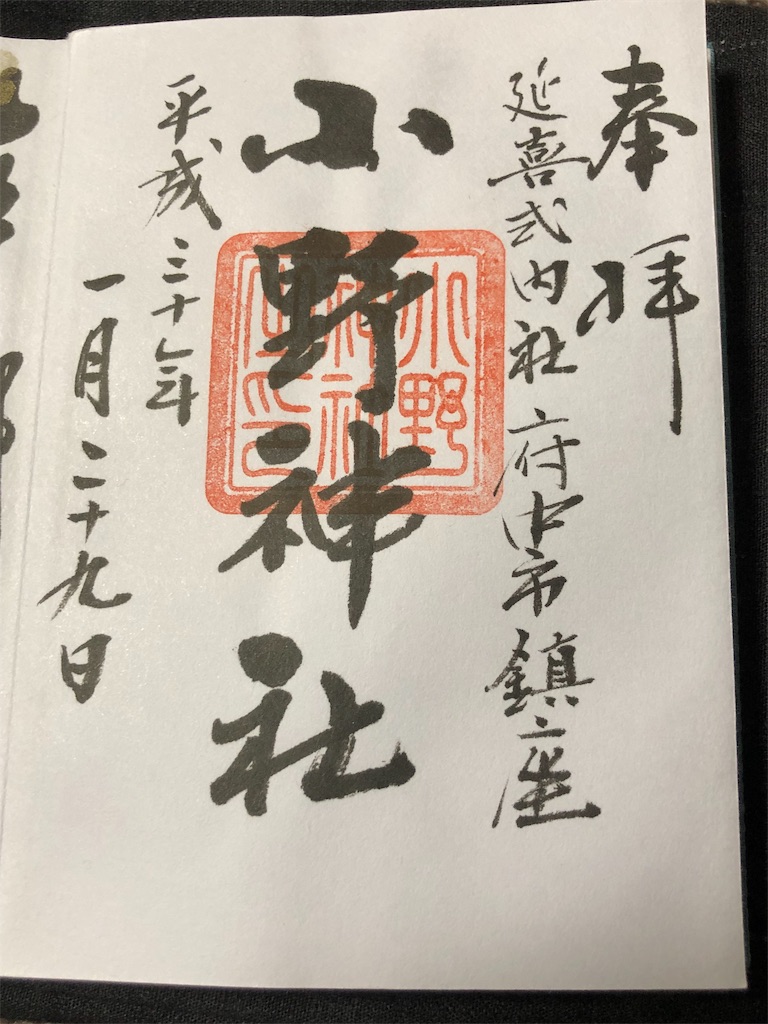 奉拝
延喜式内社 府中市鎮座
小野神社
小野
神社
平成三十年
一月二十九日